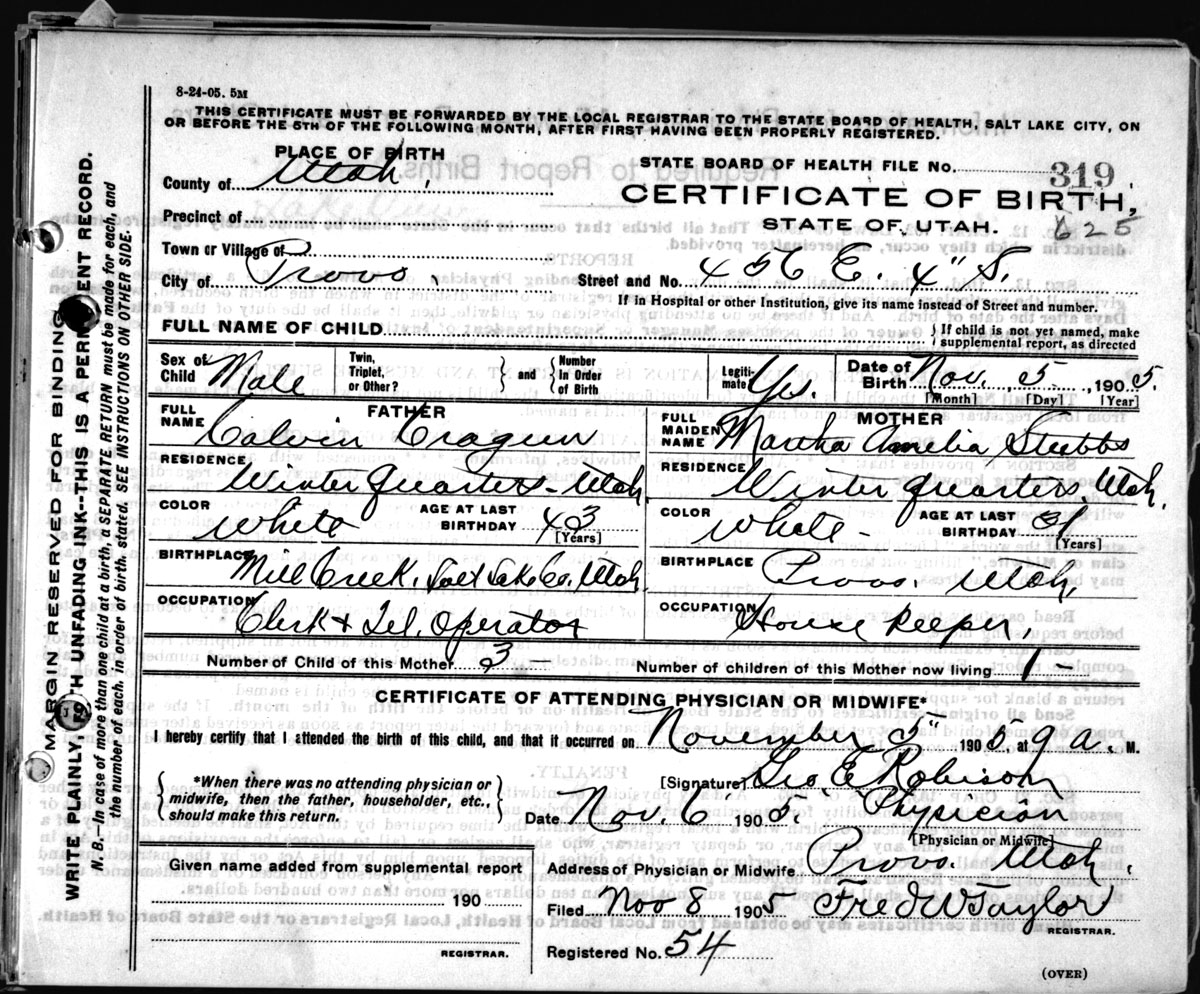 8-24-05. 5M
THIS CERTIFICATE MUST BE FORWARDED BY THE LOCAL REGISTRAR TO THE STATE BOARD OF HEALTH, SALT LAKE CITY, ON
OR BEFORE THE 5TH OF THE FOLLOWING MONTH, AFTER FIRST HAVING BEEN PROPERLY REGISTERED.
PLACE OF BIRTH
STATE BOARD OF HEALTH FILE No. 319
County of Utah.
CERTIFICATE OF BIRTH,
Precinct of
STATE OF UTAH. 625
Town or Village of
City of Provo. Street and No. 456 E. 4" S.
If in Hospital or other Institution, give its name instead of Street and number.
FULL NAME OF CHILD
{ If child is not yet named, make
supplemental report, as directed
Sex of Child Male Twin, Triplet, or Other? } and { Number In Order of Birth Legiti-mate Yes. Date of Birth Nov. 5. 1905.
[Month] [Day] [Year]
FATHER MOTHER
FULL NAME Calvin Cragun FULL MAIDEN NAME Martha Amelia Stubbs
RESIDENCE Winter Quarters - Utah. RESIDENCE Winter Quarters, Utah.
COLOR White AGE AT LAST BIRTHDAY 43 [Years] COLOR White - AGE AT LAST BIRTHDAY 31 [Years]
BIRTHPLACE Mill Creek, Salt Lake Co. Utah BIRTHPLACE Provo. Utah.
OCCUPATION Clerk & Tel. Operator OCCUPATION House Keeper.
Number of Child of this Mother 3 - Number of children of this Mother now living 1 -
CERTIFICATE OF ATTENDING PHYSICIAN OR MIDWIFE*
I hereby certify that I attended the birth of this child, and that it occurred on November 5" 1905, at 9 a. M.
{ *When there was no attending physician or
midwife, then the father, householder, etc.,
should make this return. }
[Signature] Geo. E. Robison
Date Nov. 6 1905. Physician
[Physician or Midwife]
Given name added from supplemental report
Address of Physician or Midwife Provo. Utah.
190
Filed Nov 8 1905 Fred W Taylor
REGISTRAR.
REGISTRAR.
Registered No. 54
(OVER)
MARGIN RESERVED FOR BINDING
WRITE PLAINLY, WITH UNFADING INK--THIS IS A PERMENENT RECORD.
N. B.—In case of more than one child at a birth, a SEPARATE RETURN must be made for each, and
the number of each, in order of birth, stated. SEE INSTRUCTIONS ON OTHER SIDE.